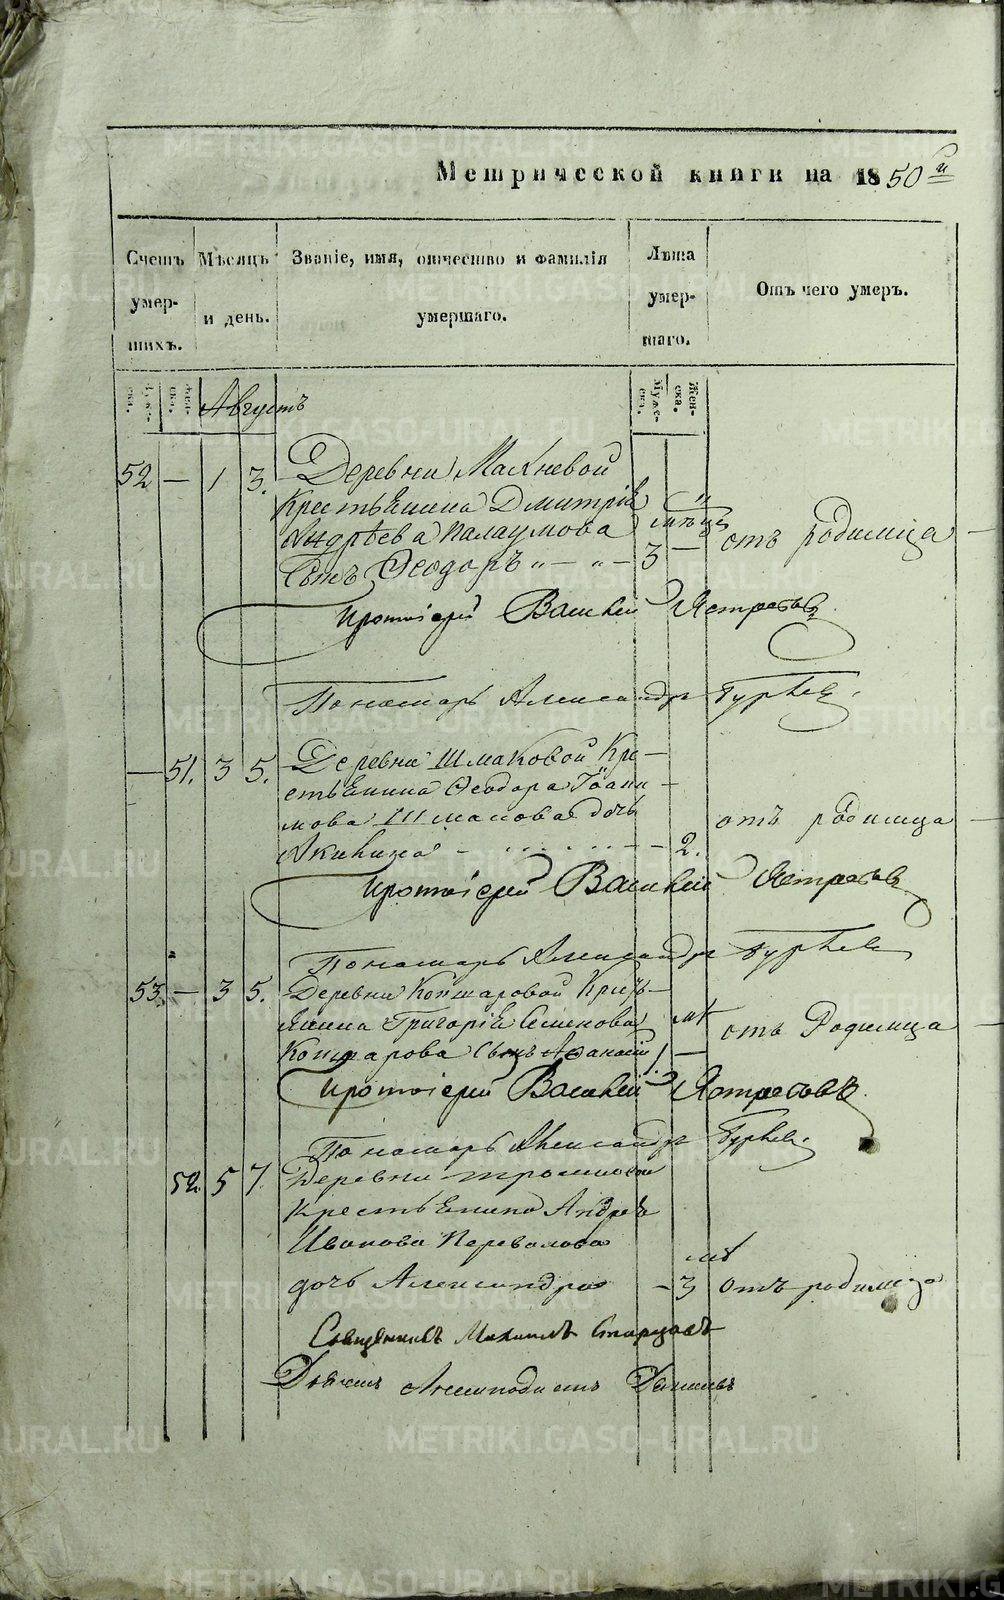 Метрической книги на 1850й
Счетъ умер- шихъ.
Мѣсяцъ и день.
Званіе, имя, отчество и фамилія умершаго.
Лѣта умер- шаго.
Отъ чего умеръ.
Муже- ска.
Жен- ска.
Августъ
Муже- ска.
Жен- ска.
52 — 1 3. Деревни Махневой
Крестьянина Дмитрія
Андрѣева Палаумова мѣсць
Сынъ Ѳеодоръ 3 — отъ родимца
Протоіерей Василій Ястребовъ
Пономарь Александръ Гурьев
— 51. 3 5. Деревни Шмаковой Кре-
стьянина Ѳеодора Іоанн-
мова Шмакова дочь
Акилина 2. отъ родимца
Протоіерей Василій Ястребовъ
Пономарь Александръ Гурьев
53. — 3 5. Деревни Кокшаровой Крась-
янина Григорія Семенова мѣ
Кокшарова сынъ Аѳанасій 1. — отъ Родимца
Протоіерей Василій Ястребовъ
Пономарь Александръ Гурьев.
52. 5 7. Деревни
Крестьянина Андрея
Иванова Перевалова
дочь Александра мѣ - 3 отъ родимца
Священникъ Михаилъ Старцовъ
Дьячекъ
METRIKI.GASO-URAL.RU